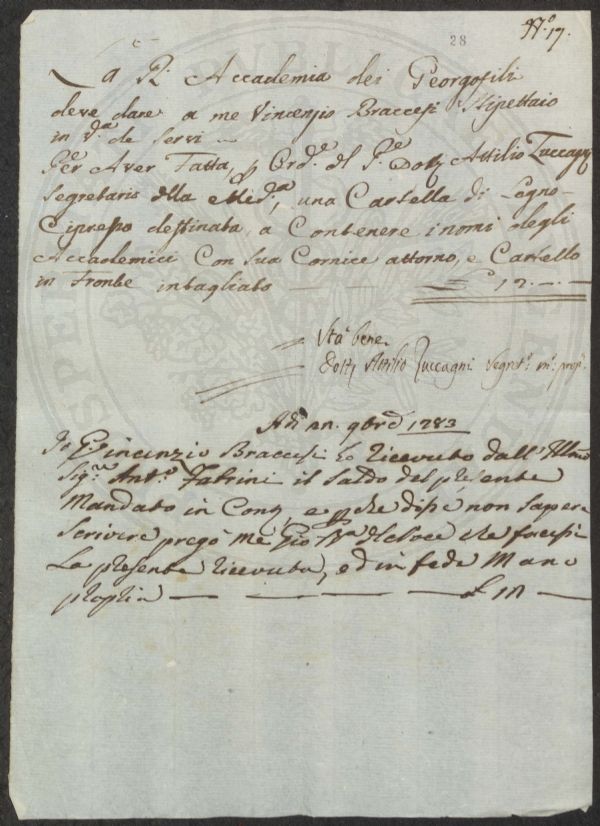 28
N.º 17.
La R. Accademia dei Georgofili
deve dare a me Vincenzio Braccesi Stipettaio
in V.ª de Servi
Per Aver Fatta, p Ord.e del S.e Dott Attilio Zuccagni
Segretario della Med.ª, una Cartella di Legno
Cipresso destinata, a Contenere i nomi degli
Accademici Con sua Cornice attorno, e Cartello
in Fronte intagliato — £ 12.—.—
Sta bene
Dott Attilio Zuccagni Segret.º m.º prop.º
Adì 9bre 1783
Io Vincenzio Braccesi ho ricevuto dall' Illmo
Sig.re Ant.º Fabrini il Saldo del presente
Mandato in Cont, e p che disse non sapere
Scrivere pregò me Gio Bª che facessi
La presente ricevuta, ed in fede Mano
propria — — — — £ 12 —